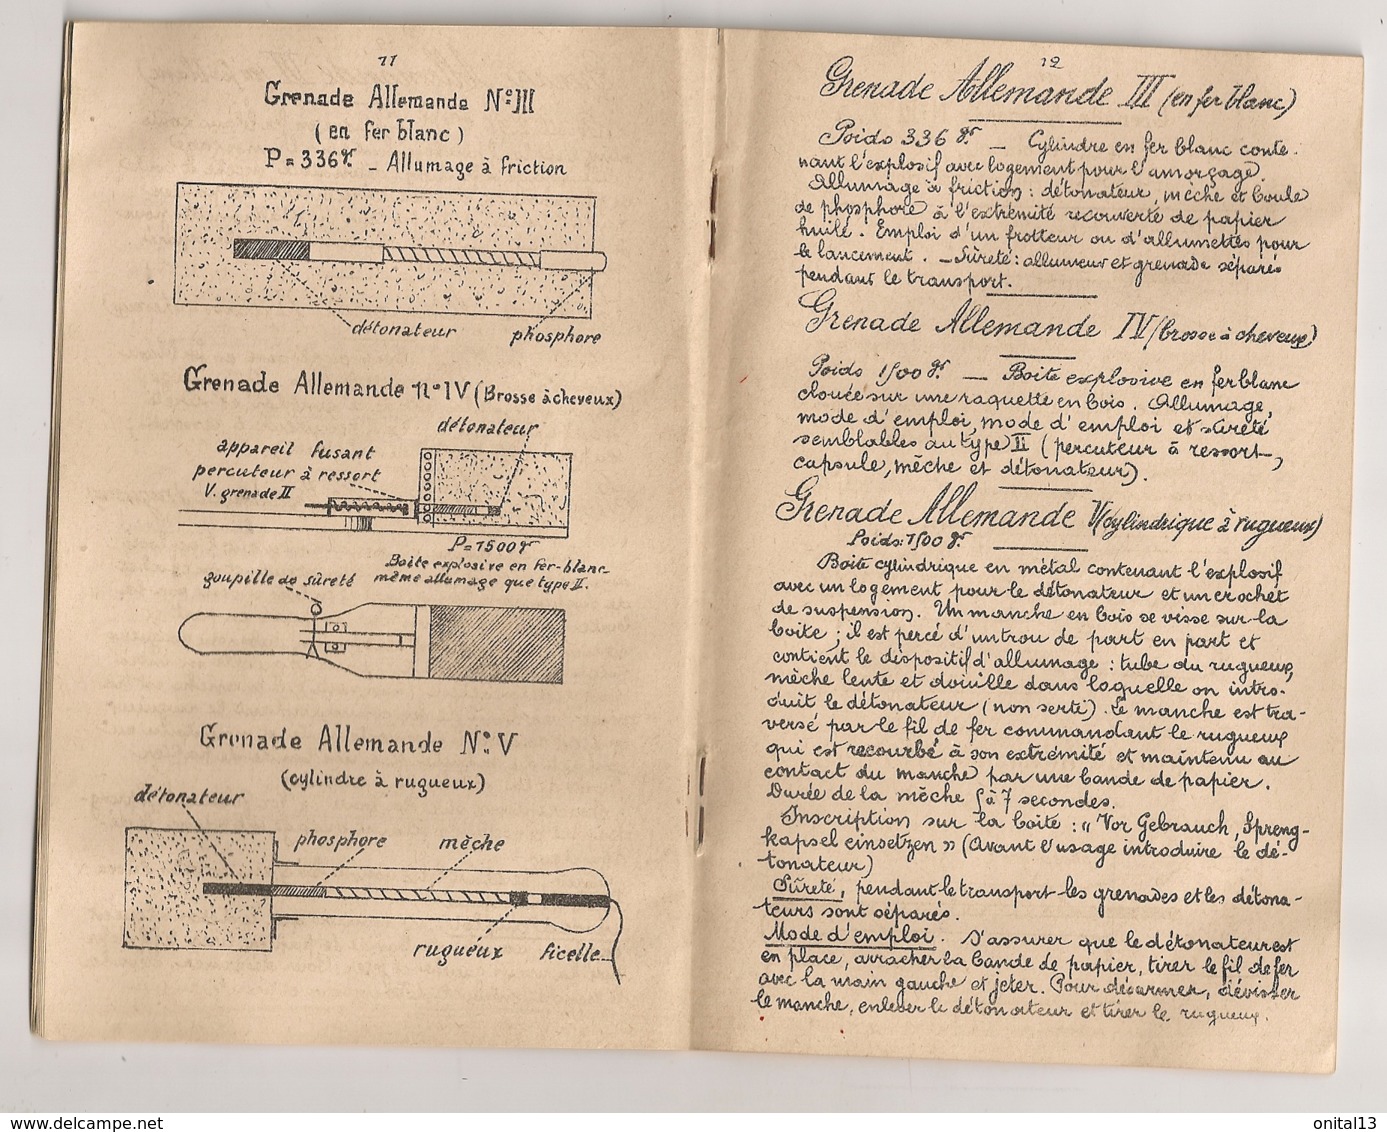 11
Grenade Allemande N°III
(en fer blanc)
P=336gr. - Allumage à friction
détonateur
phosphore
Grenade Allemande n°IV (Brosse à cheveux)
détonateur
appareil fusant
percuteur à ressort
V. grenade II
P=1500gr
Boite explosive en fer-blanc-
même allumage que type II.
goupille de sûreté
Grenade Allemande N°V
(cylindre à rugueux)
détonateur
phosphore
mèche
rugueux
ficelle
12
Grenade Allemande III (en fer blanc)
Poids 336 gr — Cylindre en fer blanc conte-
nant l'explosif avec logement pour l'amorçage.
Allumage à friction : détonateur, mèche et boule
de phosphore à l'extrémité recouverte de papier
huilé. Emploi d'un frotteur ou d'allumettes pour
le lancement. — Sûreté : allumeur et grenade séparés
pendant le transport.
Grenade Allemande IV (brosse à cheveux)
Poids 1500 gr — Boite explosive en fer blanc
clouée sur une raquette en bois. Allumage,
mode d'emploi, mode d'emploi et sûreté
semblables au type II (percuteur à ressort,
capsule, mèche et détonateur).
Grenade Allemande V (cylindrique à rugueux)
Poids: 1500 gr.
Boite cylindrique en métal contenant l'explosif
avec un logement pour le détonateur et un crochet
de suspension. Un manche en bois se visse sur la
boite ; il est percé d'un trou de part en part et
contient le dispositif d'allumage : tube du rugueux,
mèche lente et douille dans laquelle on intro-
duit le détonateur (non serti). Le manche est tra-
versé par le fil de fer commandant le rugueux
qui est recourbé à son extrémité et maintenu au
contact du manche par une bande de papier.
Durée de la mèche 5 à 7 secondes.
Inscription sur la boite : "Vor Gebrauch, Spreng-
kapsel einsetzen" (Avant l'usage introduire le dé-
tonateur)
Sûreté, pendant le transport les grenades et les détona-
teurs sont séparés.
Mode d'emploi. S'assurer que le détonateur est
en place, arracher la bande de papier, tirer le fil de fer
avec la main gauche et jeter. Pour désarmer, dévisser
le manche, enlever le détonateur et tirer le rugueux.
onital13